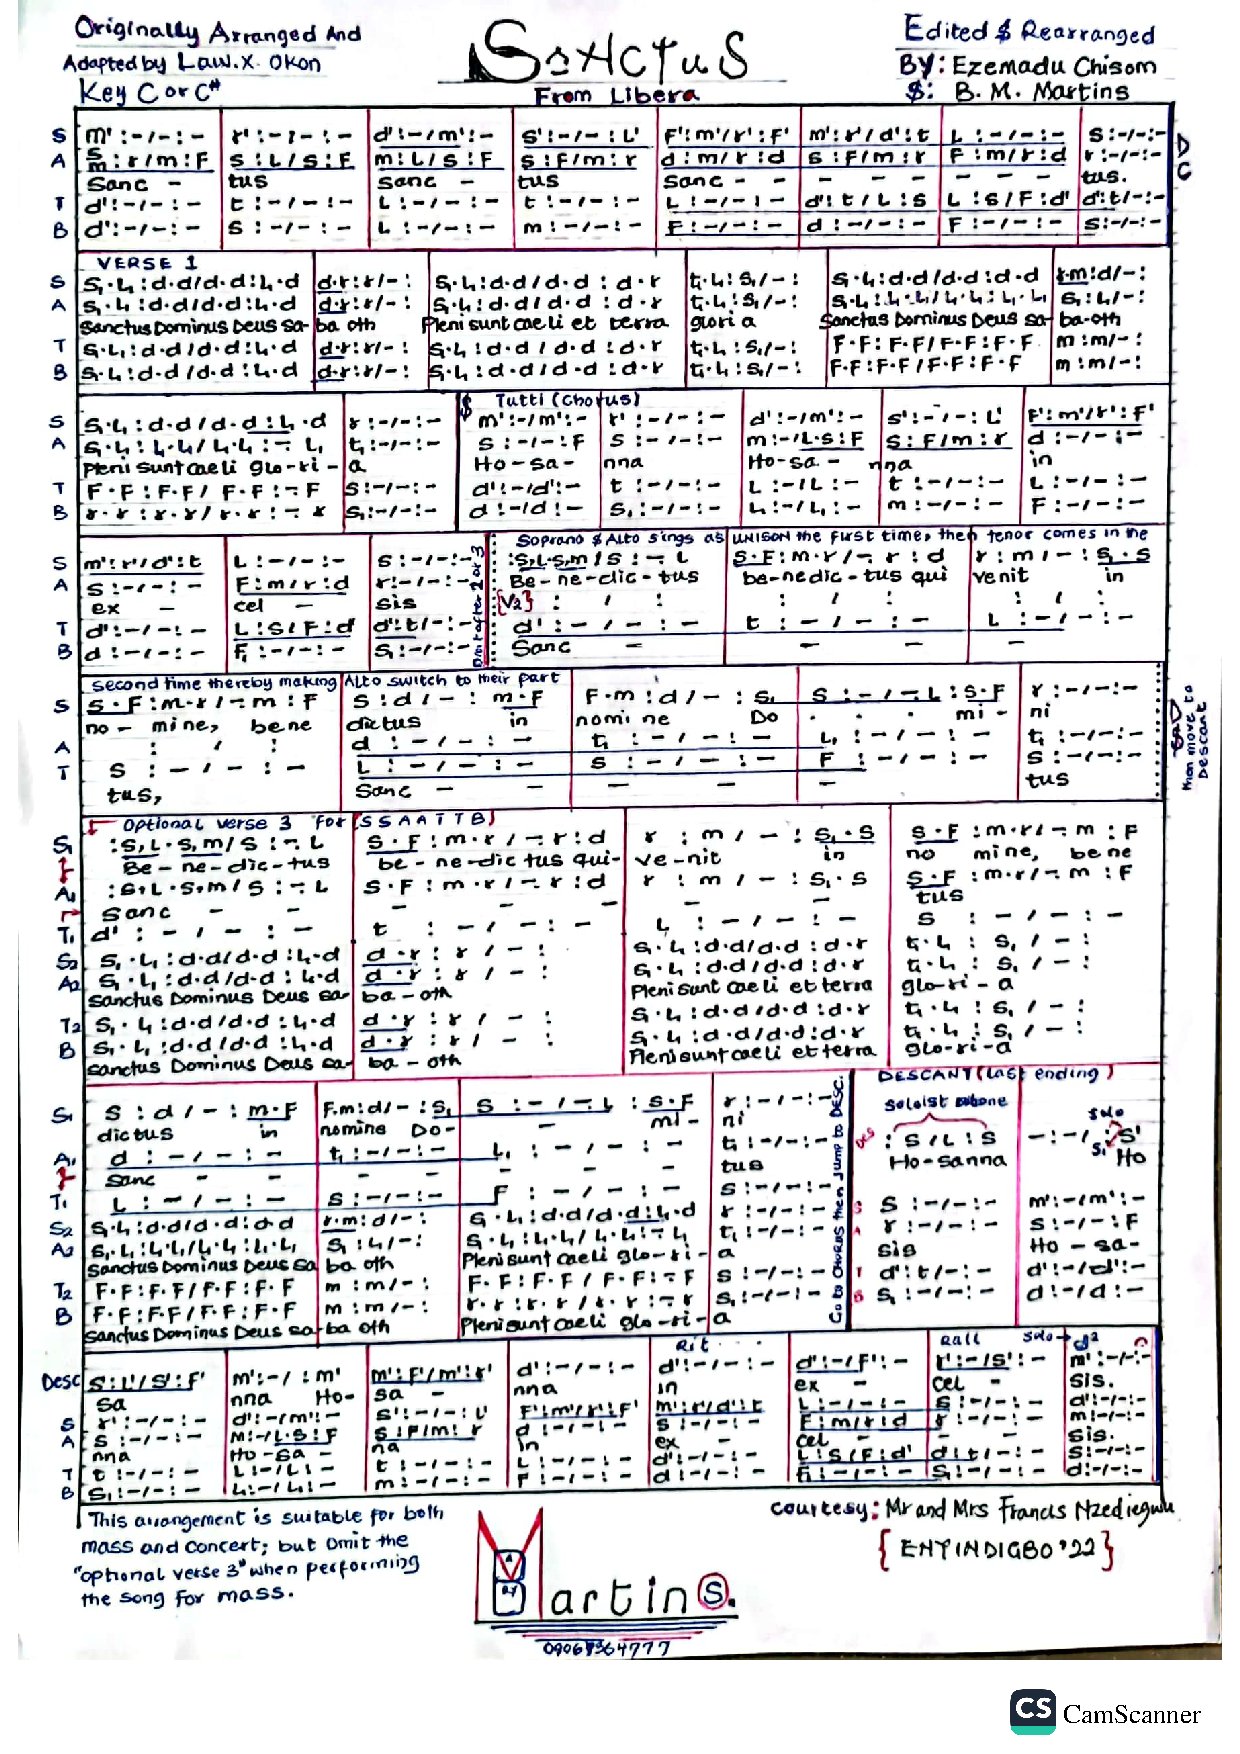 Originally Arranged And
Adapted by Law.X. Okon
Key C or C#
SANCTUS
From Libera
Edited $ Rearranged
BY: Ezemadu Chisom
$: B. M. Martins
S m' :-/-:- r' :-/-:- d' :-/m':- s' :-/-: L' F':m'/r':F' m':r'/d':t L :-/-:- s:-/-:- DC
A m:r/m:F s:L/s:F m:L/s:F s:F/m:r d:m/r:d s:F/m:r F:m/r:d r:-/-:-
Sanc - tus sanc - tus Sanc - - - - - - - - tus.
T d':-/-:- t:-/-:- L:-/-:- t:-/-:- L:-/-:- d':t/L:s L:s/F:d' d':t/-:-
B d':-/-:- s:-/-:- L:-/-:- m:-/-:- F:-/-:- d:-/-:- F:-/-:- s:-/-:-
VERSE 1
S s₁.L₁:d.d/d.d:L₁.d d.r:r/-: s₁.L₁:d.d/d.d:d.r t₁.L₁:s₁/-: s₁.L₁:d.d/d.d:d.d r.m:d/-:
A s₁.L₁:d.d/d.d:L₁.d d.r:r/-: s₁.L₁:d.d/d.d:d.r t₁.L₁:s₁/-: s₁.L₁:L₁.L₁/L₁.L₁:L₁.L₁ s₁:L₁/-:
Sanctus Dominus Deus sa- ba oth Pleni sunt caeli et terra gloria Sanctus Dominus Deus sa- ba-oth
T s₁.L₁:d.d/d.d:L₁.d d.r:r/-: s₁.L₁:d.d/d.d:d.r t₁.L₁:s₁/-: F.F:F.F/F.F:F.F m:m/-:
B s₁.L₁:d.d/d.d:L₁.d d.r:r/-: s₁.L₁:d.d/d.d:d.r t₁.L₁:s₁/-: F.F:F.F/F.F:F.F m:m/-:
$ Tutti (Chorus)
S s₁.L₁:d.d/d.d:L₁.d r:-/-:- m':-/m':- r':-/-:- d':-/m':- s':-/-:L' F':m'/r':F'
A s₁.L₁:L₁.L₁/L₁.L₁:-.L₁ t₁:-/-:- s:-/-:F s:-/-:- m:-/L.s:F s:F/m:r d:-/-:-
Pleni sunt caeli glo-ri- a Ho-sa- nna Ho-sa- nna in
T F.F:F.F/F.F:-.F s:-/-:- d':-/d':- t:-/-:- L:-/L:- t:-/-:- L:-/-:-
B r.r:r.r/r.r:-.r s₁:-/-:- d:-/d:- s₁:-/-:- L₁:-/L₁:- m:-/-:- F:-/-:-
Soprano $ Alto sings as UNISON the first time, then tenor comes in the
S m':r'/d':t L:-/-:- s:-/-:- :s₁L.s₁m/s:-.L s.F:m.r/-.r:d r:m/-:s₁.s
A s:-/-:- F:m/r:d r:-/-:- Be-ne-dic-tus be-nedic-tus qui venit in
ex - cel - sis {V2} : / : : / : : / :
T d':-/-:- L:s/F:d d':t/-:- d':-/-:- t:-/-:- L:-/-:-
B d:-/-:- F₁:-/-:- s₁:-/-:- Sanc - - -
second time thereby making Alto switch to their part
S s.F:m.r/-.m:F s:d/-:m.F F.m:d/-:s₁ s:-/-.L:s.F r:-/-:-
no - mine, bene dictus in nomine Do . . . mi- ni
A : / : d:-/-:- t₁:-/-:- L₁:-/-:- t₁:-/-:-
T s:-/-:- L:-/-:- s:-/-:- F:-/-:- s:-/-:-
tus, Sanc - - - - tus
then move to Descant
Optional verse 3 for (SSAATTB)
S₁ :s₁L.s₁m/s:-.L s.F:m.r/-.r:d r:m/-:s₁.s s.F:m.r/-.m:F
Be-ne-dic-tus be-ne-dic tus qui- ve-nit in no mine, bene
A₁ :s₁L.s₁m/s:-.L s.F:m.r/-.r:d r:m/-:s₁.s s.F:m.r/-.m:F
Sanc - - - - - - - tus
T₁ d':-/-:- t:-/-:- L₁:-/-:- s:-/-:-
S2 s₁.L₁:d.d/d.d:L₁.d d.r:r/-: s₁.L₁:d.d/d.d:d.r t₁.L₁:s₁/-:
A2 s₁.L₁:d.d/d.d:L₁.d d.r:r/-: s₁.L₁:d.d/d.d:d.r t₁.L₁:s₁/-:
Sanctus Dominus Deus sa- ba-oth Pleni sunt caeli et terra glo-ri-a
T2 s₁.L₁:d.d/d.d:L₁.d d.r:r/-: s₁.L₁:d.d/d.d:d.r t₁.L₁:s₁/-:
B s₁.L₁:d.d/d.d:L₁.d d.r:r/-: s₁.L₁:d.d/d.d:d.r t₁.L₁:s₁/-:
Sanctus Dominus Deus sa- ba-oth Pleni sunt caeli et terra glo-ri-a
DESCANT (Last ending)
Soloist alone
S₁ s:d/-:m.F F.m:d/-:s₁ s:-/-.L:s.F r:-/-:- :s/L:s -:-/-:s' solo
dictus in nomine Do- - mi- ni Ho-sanna Ho
A₁ d:-/-:- t₁:-/-:- L₁:-/-:- t₁:-/-:-
Sanc - - - - - tus
T₁ L:-/-:- s:-/-:- F:-/-:- s:-/-:- s:-/-:- m':-/m':-
S2 s₁.L₁:d.d/d.d:d.d r.m:d/-: s₁.L₁:d.d/d.d:L₁.d r:-/-:- r:-/-:- s:-/-:F
A2 s₁.L₁:L₁.L₁/L₁.L₁:L₁.L₁ s₁:L₁/-: s₁.L₁:L₁.L₁/L₁.L₁:-.L₁ t₁:-/-:- sis Ho-sa-
Sanctus Dominus Deus sa ba oth Pleni sunt caeli glo-ri- a
T2 F.F:F.F/F.F:F.F m:m/-: F.F:F.F/F.F:-.F s:-/-:- d':t/-:- d':-/d':-
B F.F:F.F/F.F:F.F m:m/-: r.r:r.r/r.r:-.r s₁:-/-:- s₁:-/-:- d:-/d:-
Sanctus Dominus Deus sa- ba oth Pleni sunt caeli glo-ri- a
Go to CHORUS then Jump to DESC.
Rit . . . Rall Solo→d²
Desc s':L'/s':F' m':-/:m' m':F'/m':r' d':-/-:- d':-/-:- d':-/F':- r':-/s':- m':-/-:-
sa nna Ho- sa - nna in ex - cel - sis.
S r':-/-:- d':-/m':- s':-/-:L' F':m'/r':F' m':r'/d':t L:-/-:- s:-/-:- d':-/-:-
A s:-/-:- m:-/L.s:F s:F/m:r d:-/-:- s:-/-:- F:m/r:d r:-/-:- m:-/-:-
nna Ho-sa - na in ex - cel - - sis.
T t:-/-:- L:-/L:- t:-/-:- L:-/-:- d':-/-:- L:s/F:d' d:t/-:- s:-/-:-
B s₁:-/-:- L₁:-/L₁:- m:-/-:- F:-/-:- d:-/-:- F₁:-/-:- s₁:-/-:- d:-/-:-
This arrangement is suitable for both
mass and concert; but omit the
"optional verse 3" when performing
the song for mass.
Martins.
courtesy: Mr and Mrs Francis Nzediegwu
{ENYINDIGBO '22}
CS CamScanner